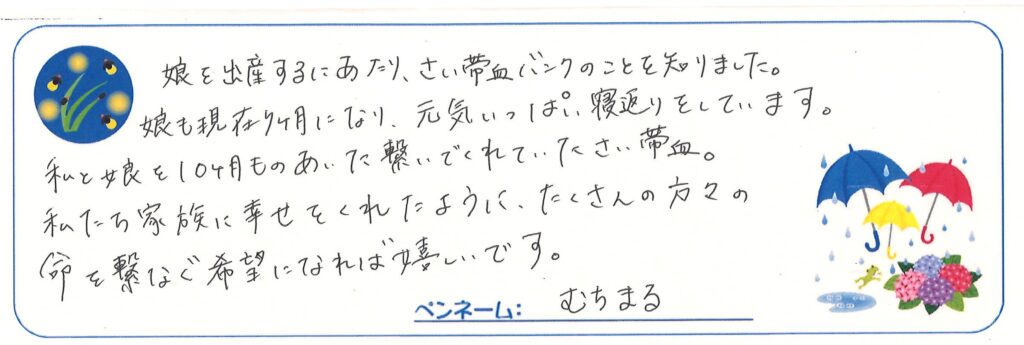 娘を出産するにあたり、さい帯血バンクのことを知りました。
娘も現在7ヶ月になり、元気いっぱい寝返りをしています。
私と娘を10ヶ月ものあいだ繋いでくれていたさい帯血。
私たち家族に幸せをくれたように、たくさんの方々の
命を繋なぐ希望になれば嬉しいです。
ペンネーム: むちまる